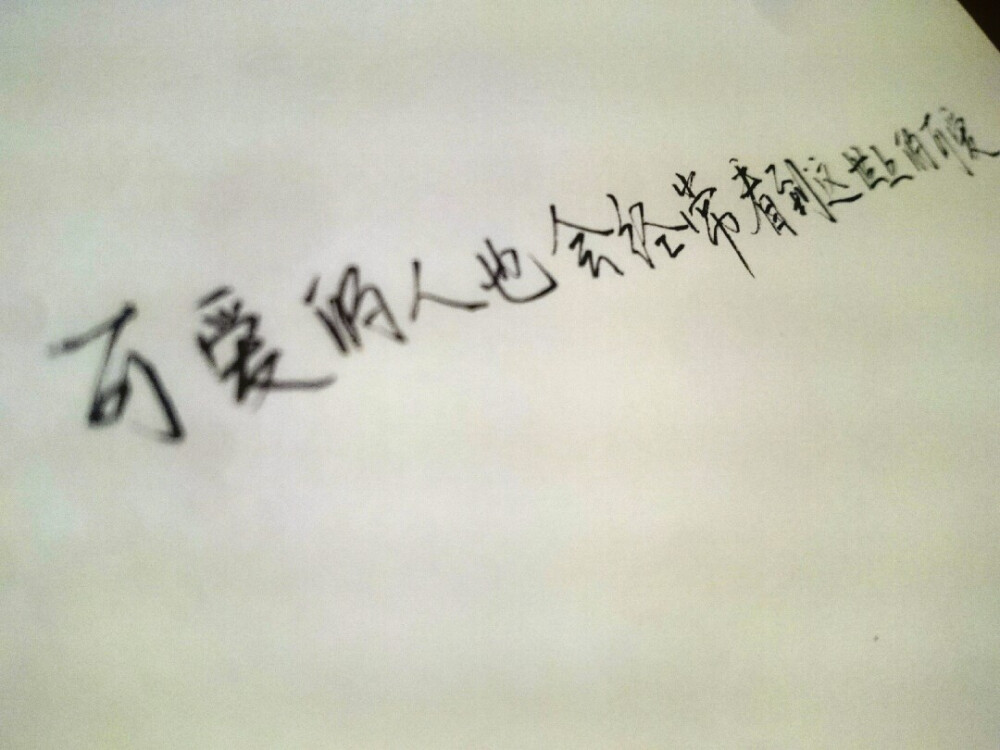 可爱的人也会经常看到这世上的可爱